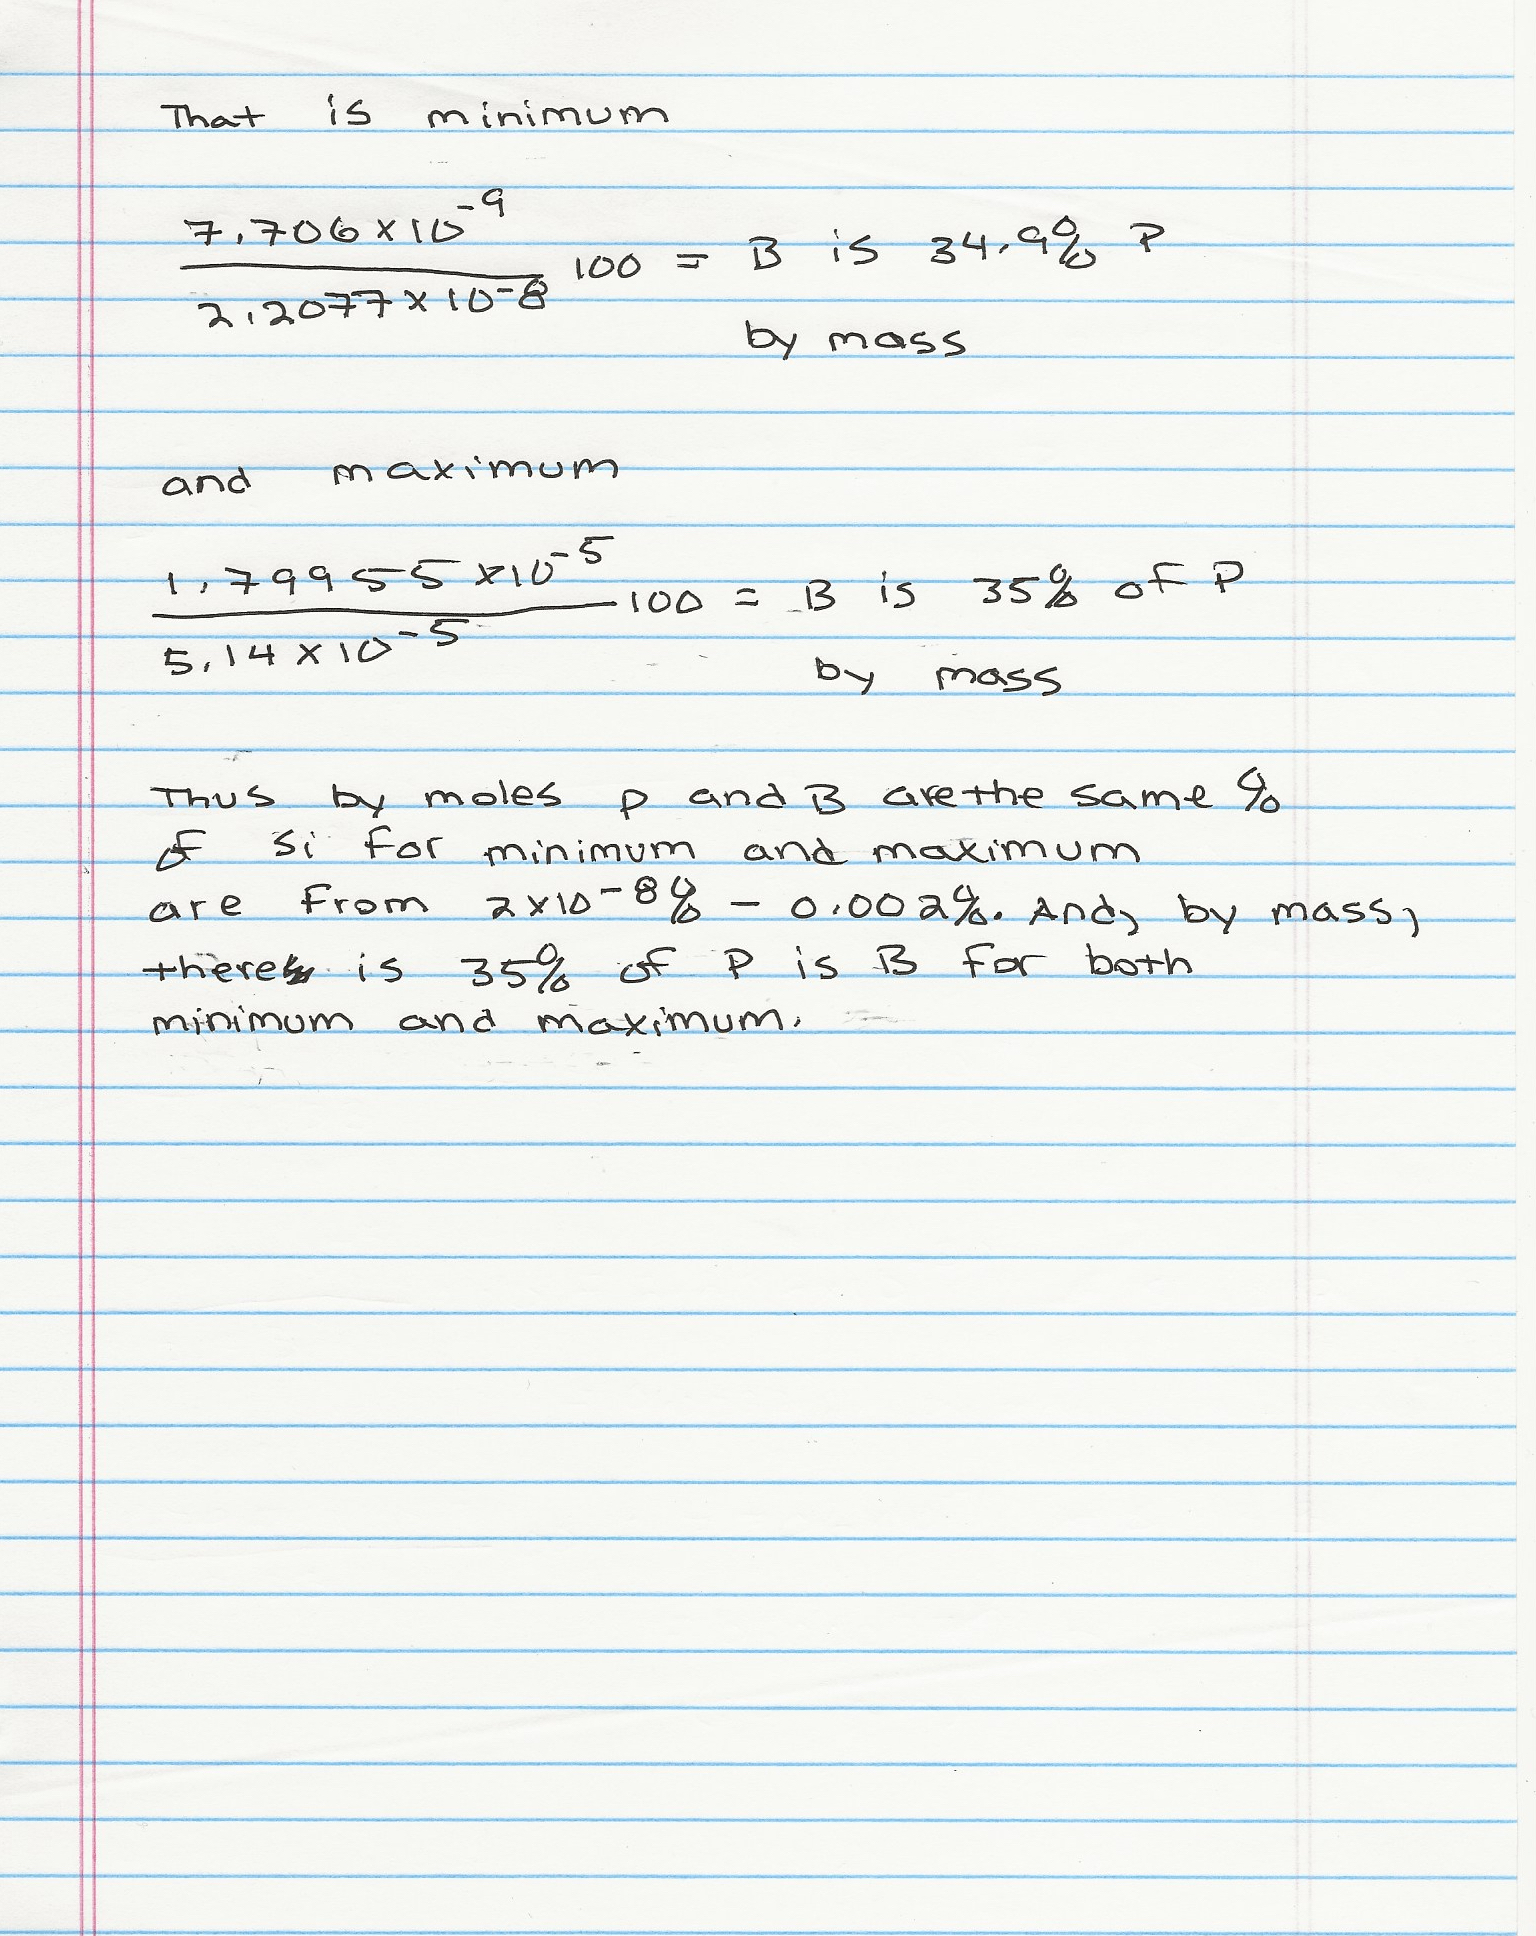 That is minimum
7.706 x 10^-9
100 = B is 34.9% P
2.2077 x 10^-8
by mass
and maximum
1.79955 x 10^-5
100 = B is 35% of P
5.14 x 10^-5
by mass
Thus by moles p and B are the same %
of Si for minimum and maximum
are from 2x10^-8% - 0.002%. And, by mass,
there is 35% of P is B for both
minimum and maximum.